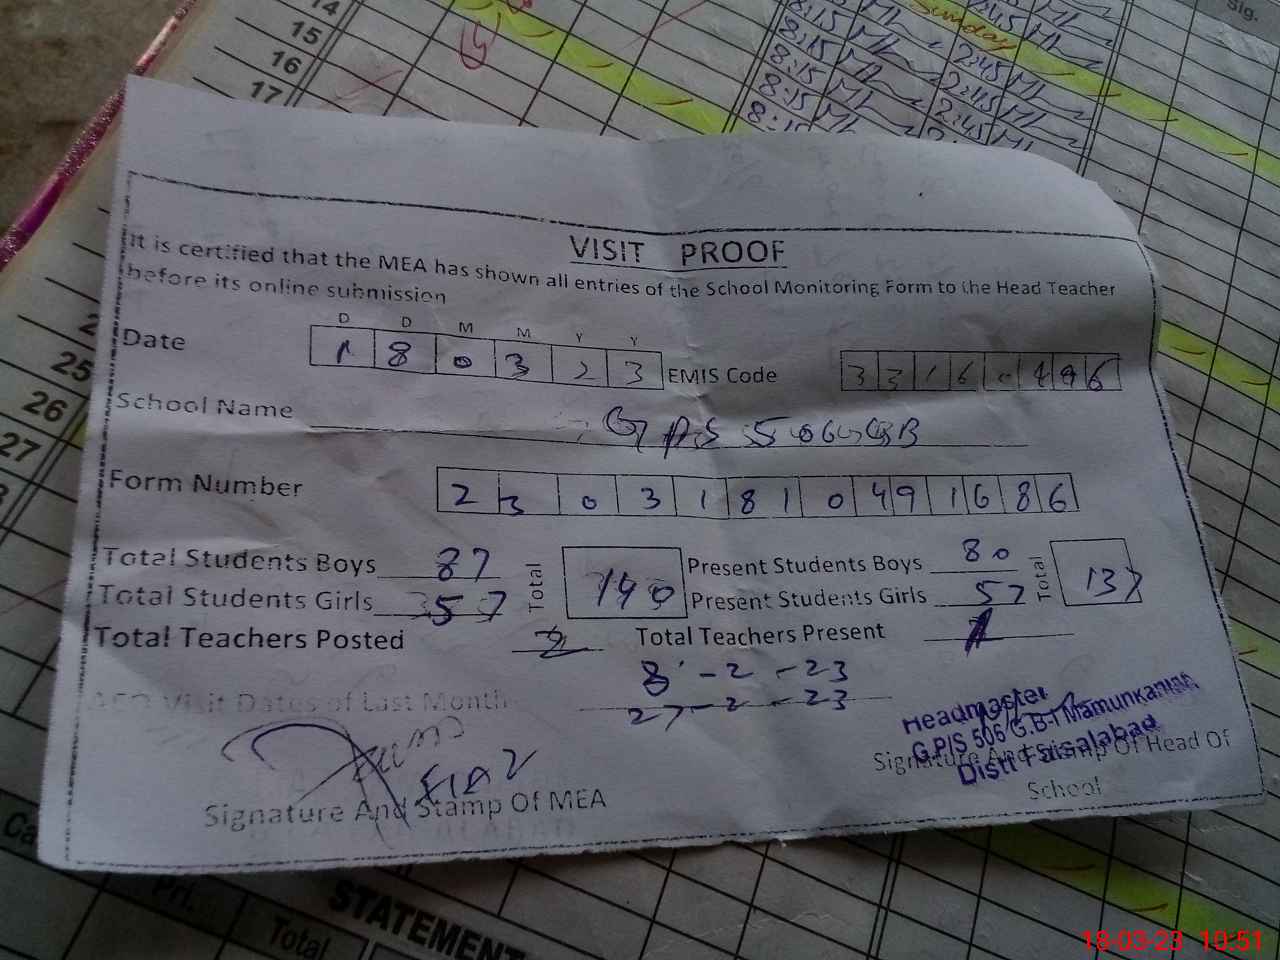 14
15
16
17
Sunday
Sig.
8:15
2:45
8:15
2:45
8:15
2:45
8:15
2:45
VISIT PROOF
It is certified that the MEA has shown all entries of the School Monitoring Form to the Head Teacher
before its online submission
D D M M Y Y
Date 1 8 0 3 2 3 EMIS Code
School Name GPS 506 GB
Form Number 2 3 0 3 1 8 1 0 4 9 1 6 8 6
Total Students Boys 87 Total Present Students Boys 80 Total 137
Total Students Girls 57 Present Students Girls 57
Total Teachers Posted 2 Total Teachers Present 1
8-2-23
AEO Visit Dates of Last Month 27-2-23
Headmaster
G.P/S 506 G.B-I Mamunkanjan
Distt Faisalabad
Signature And Stamp Of MEA
Signature And Stamp Of Head Of
School
25
26
27
Pri.
Total
STATEMENT
18-03-23 10:51